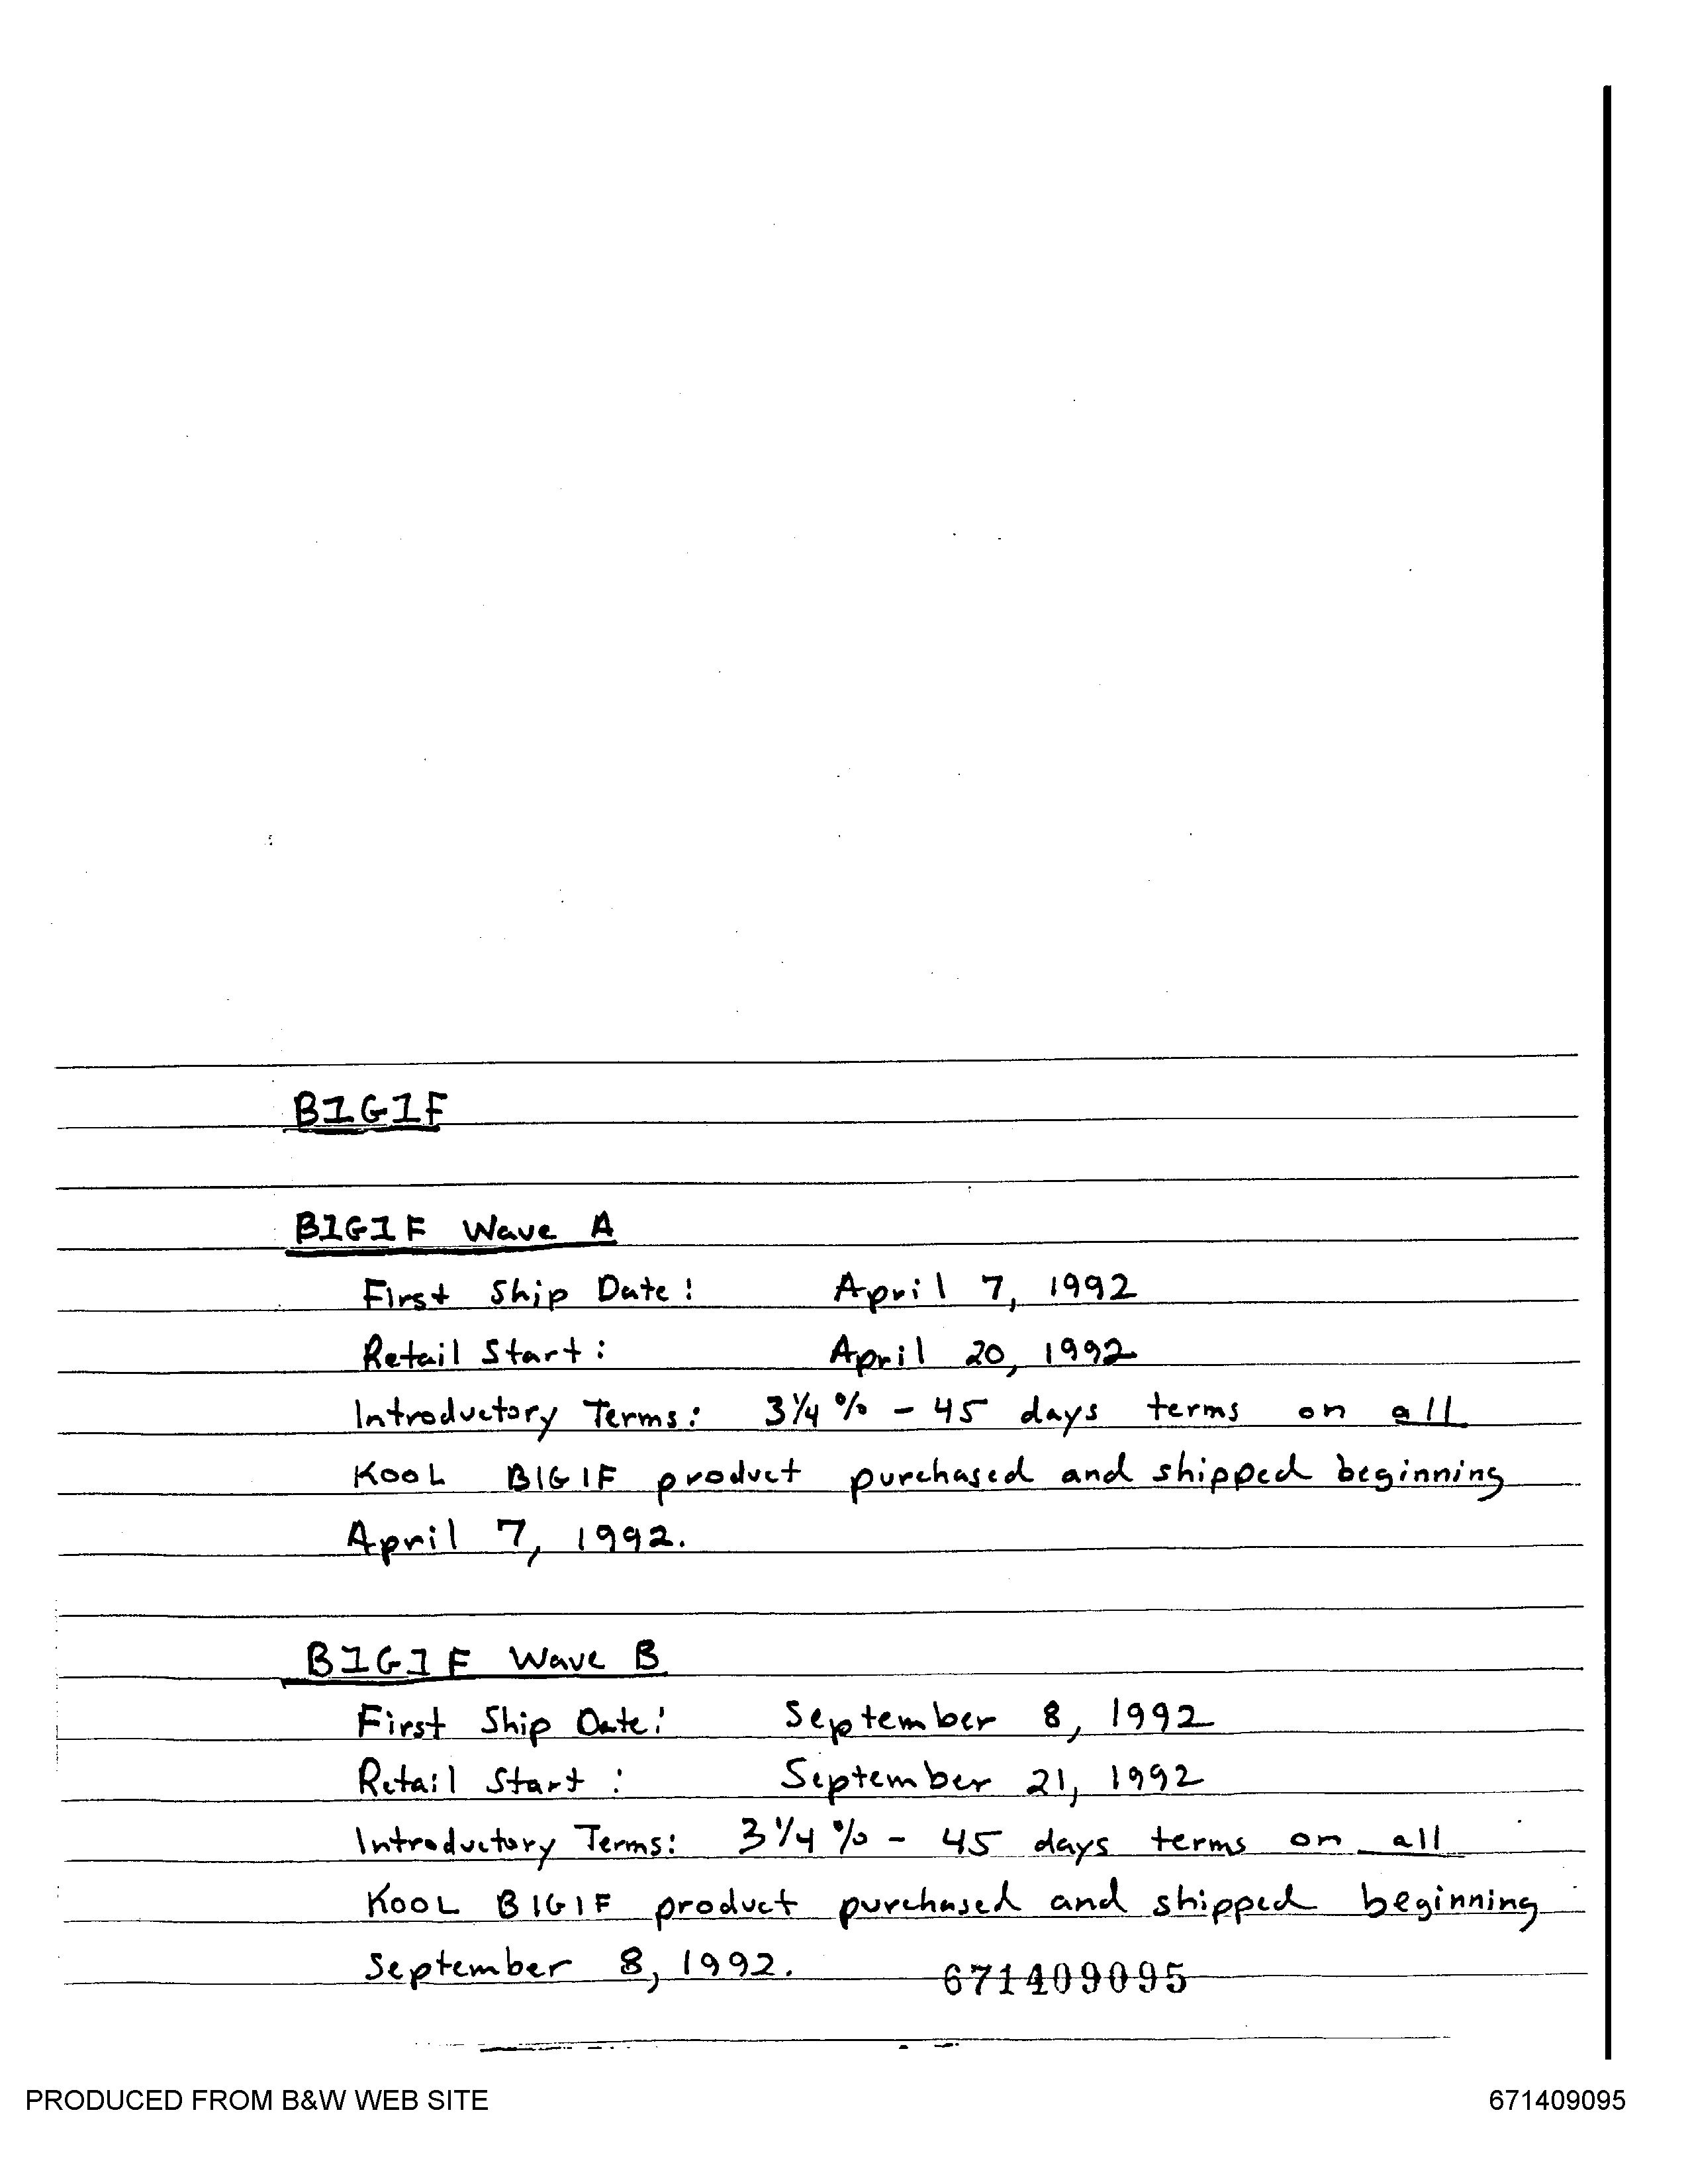 BIGIF
BIGIF Wave A
First Ship Date: April 7, 1992
Retail Start: April 20, 1992
Introductory Terms: 3 1/4 % - 45 days terms on all
KOOL BIGIF product purchased and shipped beginning
April 7, 1992.
BIGIF Wave B
First Ship Date: September 8, 1992
Retail Start: September 21, 1992
Introductory Terms: 3 1/4 % - 45 days terms on all
KOOL BIGIF product purchased and shipped beginning
September 8, 1992. 671409095
PRODUCED FROM B&W WEB SITE 671409095